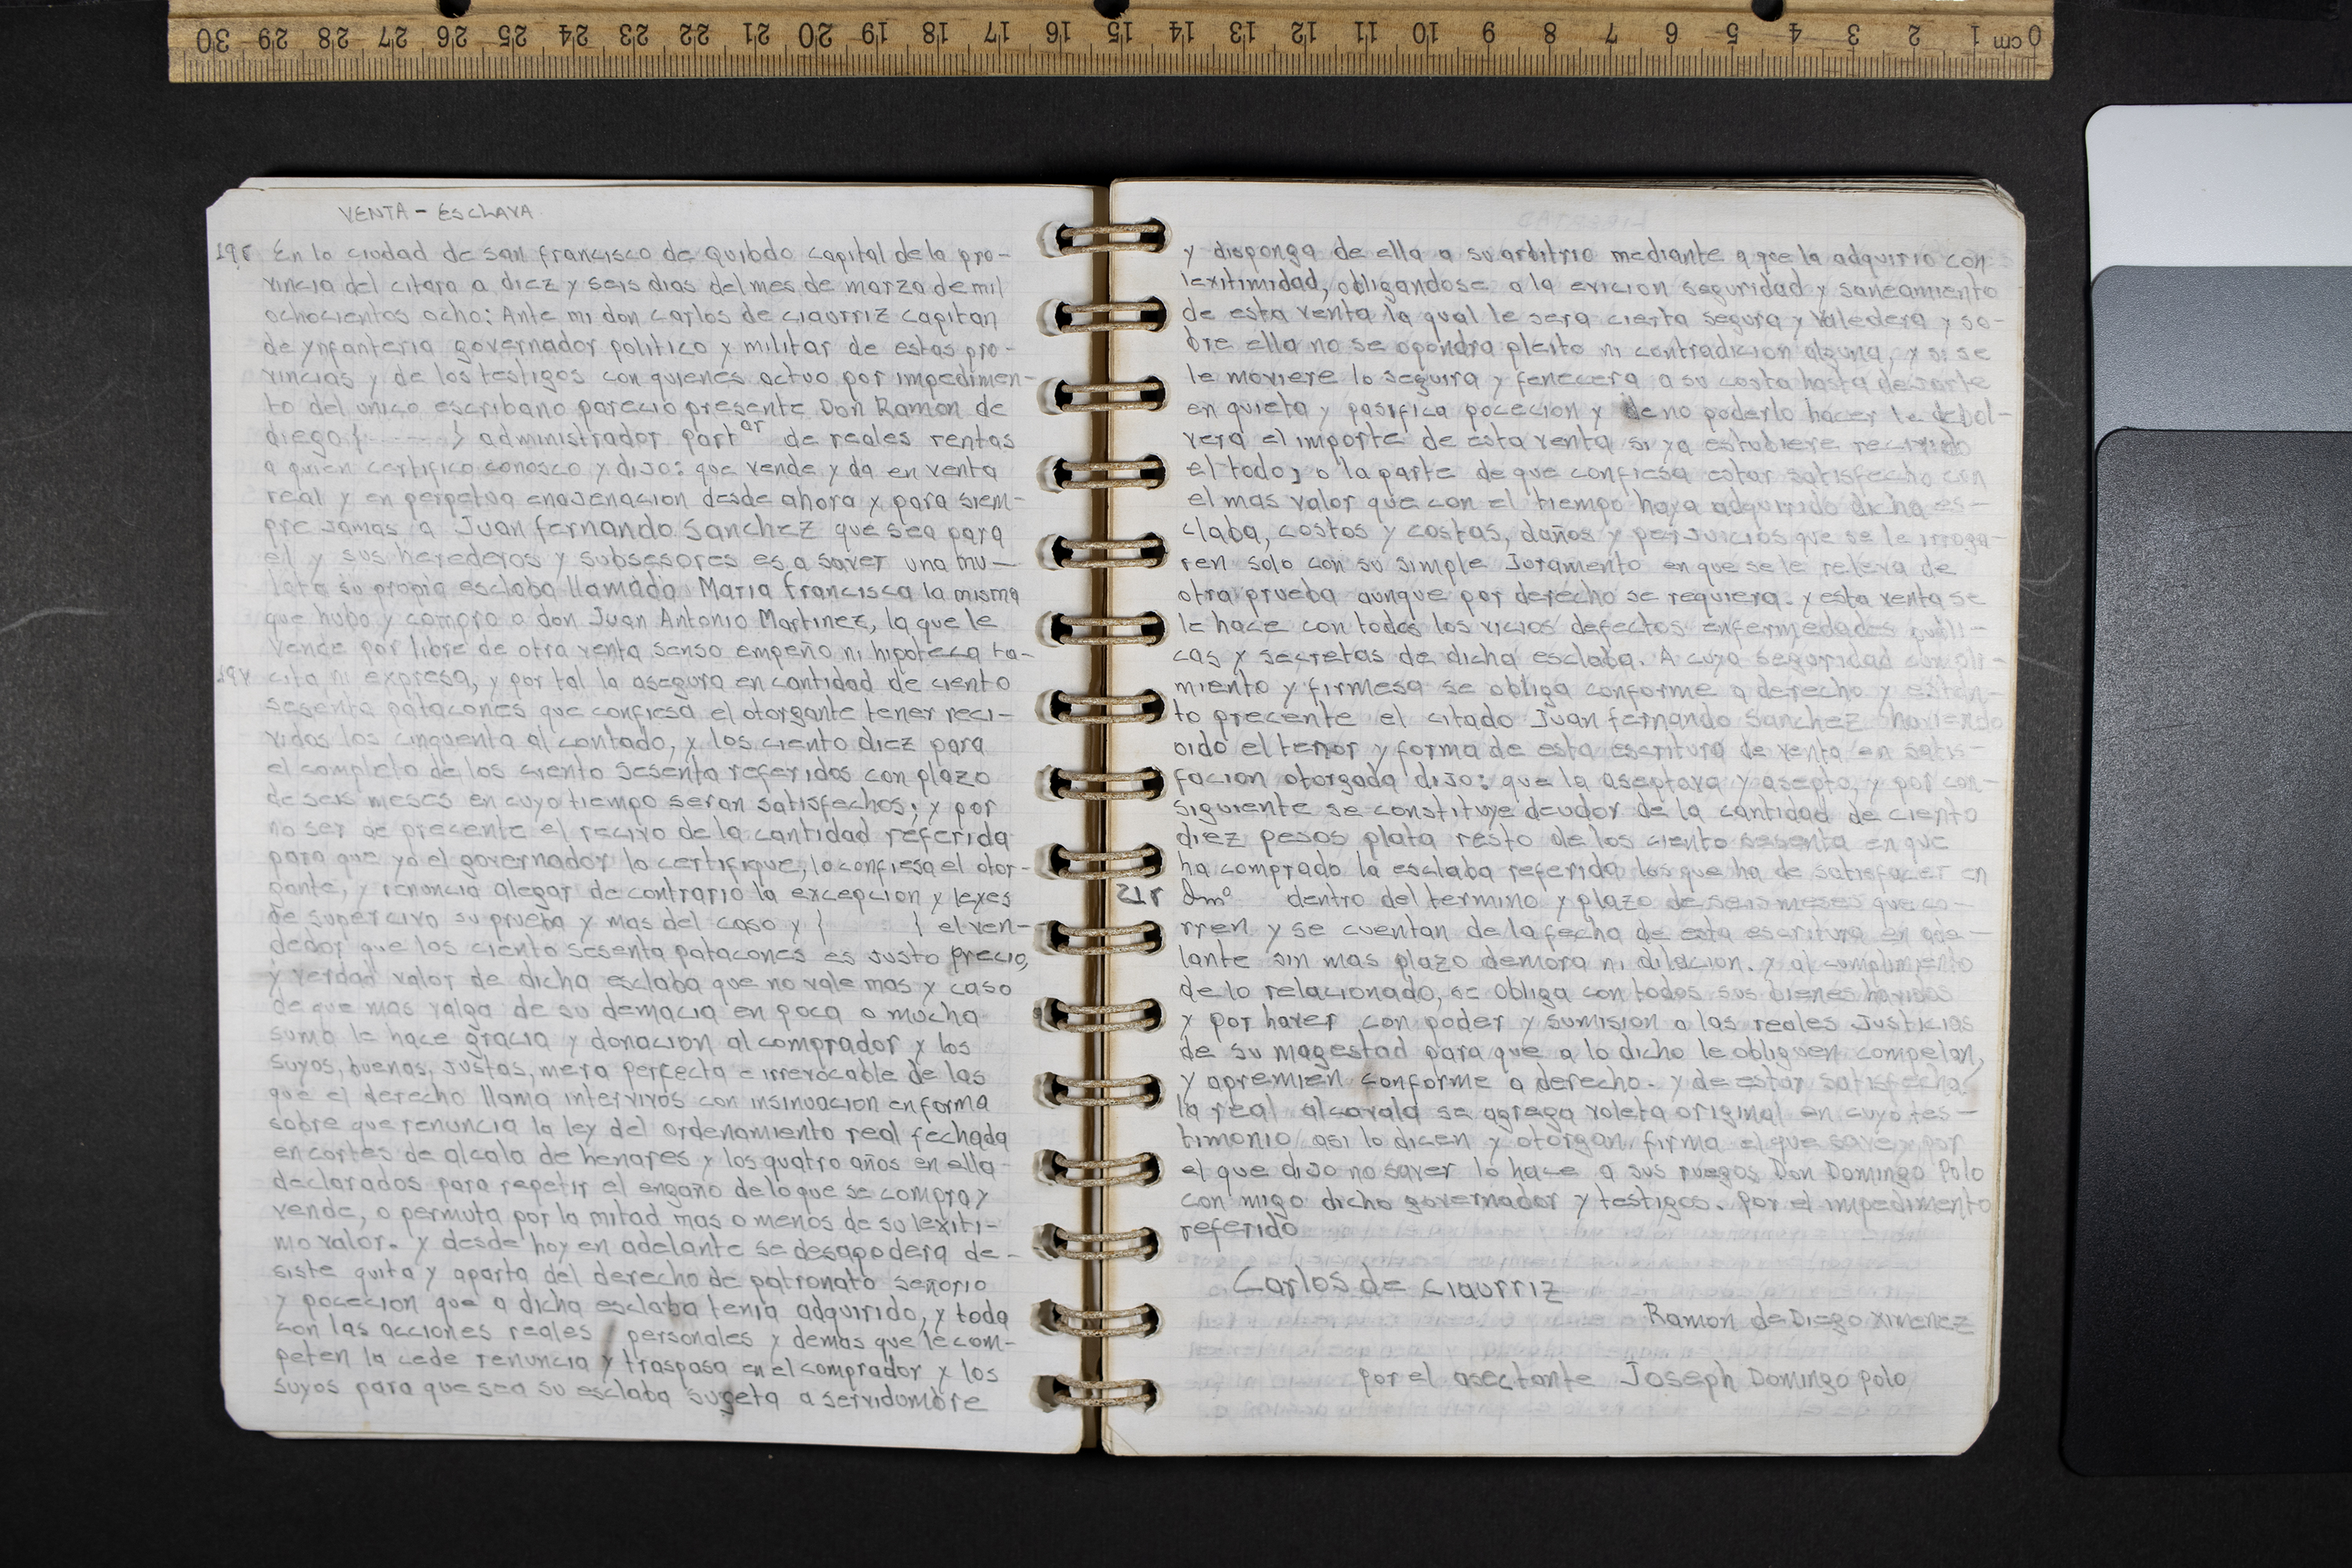 30 29 28 27 26 25 24 23 22 21 20 19 18 17 16 15 14 13 12 11 10 9 8 7 6 5 4 3 2 1 cm 0
VENTA - ESCLAVA
19r En la ciudad de san francisco de Quibdo capital de la pro-
vincia del citara a diez y seis dias del mes de marzo de mil
ochocientos ocho: Ante mi don carlos de ciaurriz capitan
de ynfanteria governador politico y militar de estas pro-
vincias y de los testigos con quienes actuo por impedimen-
to del unico escribano parecio presente Don Ramon de
diego { ---- } administrador partar de reales rentas
a quien certifico conosco y dijo: que vende y da en venta
real y en perpetua enajenacion desde ahora y para siem-
pre jamas a Juan fernando Sanchez que sea para
el y sus herederos y subsesores es a saver una mu-
lata su propia esclaba llamada Maria Francisca la misma
que hubo y compro a don Juan Antonio Martinez, la que le
vende por libre de otra venta senso empeño ni hipoteca ta-
19v cita ni expresa, y por tal la asegura en cantidad de ciento
sesenta patacones que confiesa el otorgante tener reci-
vidos los cinquenta al contado, y los ciento diez para
el completo de los ciento sesenta referidos con plazo
de seis meses en cuyo tiempo seran satisfechos; y por
no ser de precente el recivo de la cantidad referida
para que yo el governador lo certifique, lo confiesa el otor-
gante, y renuncia alegar de contrario la excepcion y leyes
de supercivo su prueba y mas del caso y { } el ven-
dedor que los ciento sesenta patacones es justo precio,
y verdad valor de dicha esclaba que no vale mas y caso
de que mas valga de su demacia en poca o mucha
suma le hace gracia y donacion al comprador y los
suyos, buenas, justas, mera perfecta e irrevocable de las
que el derecho llama intervivos con insinuacion en forma
sobre que renuncia la ley del ordenamiento real fechada
en cortes de alcala de henares y los quatro años en ella
declarados para repetir el engaño de lo que se compra y
vende, o permuta por la mitad mas o menos de su lexiti-
mo valor. y desde hoy en adelante se desapodera de-
siste quita y aparta del derecho de patronato señorio
y pocecion que a dicha esclaba tenia adquirido, y toda
con las acciones reales personales y demas que le com-
peten la cede renuncia y traspasa en el comprador y los
suyos para que sea su esclaba sugeta a servidumbre
y disponga de ella a su arbitrio mediante a que la adquirio con
lexitimidad, obligandose a la evicion seguridad y saneamiento
de esta venta la qual le sera cierta segura y valedera y so-
bre ella no se opondra pleito ni contradicion alguna, y si se
le moviere lo seguira y fenecera a su costa hasta dejarle
en quieta y pasifica pocecion y de no poderlo hacer le debol-
vera el importe de esta venta si ya estubiere recivido
el todo, o la parte de que confiesa estar satisfecho con
el mas valor que con el tiempo haya adquirido dicha es-
claba, costos y costas, daños y perjuicios que se le irroga-
ren solo con su simple Juramento en que se le releva de
otra prueba aunque por derecho se requiera. y esta venta se
le hace con todos los vicios defectos enfermedades publi-
cas y secretas de dicha esclaba. A cuya seguridad cumpli-
miento y firmesa se obliga conforme a derecho y estan-
to precente el citado Juan fernando Sanchez haviendo
oido el tenor y forma de esta escritura de venta en satis-
facion otorgada dijo: que la aseptava y asepto, y por con-
siguiente se constituye deudor de la cantidad de ciento
diez pesos plata resto de los ciento sesenta en que
ha comprado la esclaba referida los que ha de satisfacer en
21r dmo dentro del termino y plazo de seis meses que co-
rren y se cuentan de la fecha de esta escritura en ade-
lante sin mas plazo demora ni dilacion. y al cumplimiento
de lo relacionado, se obliga con todos sus bienes havidos
y por haver con poder y sumision a las reales justicias
de su magestad para que a lo dicho le obliguen compelan,
y apremien conforme a derecho. y de estar satisfecha
la real alcavala se agrega voleta original en cuyo tes-
timonio asi lo dicen y otorgan firma el que save y por
el que dijo no saver lo hace a sus ruegos Don Domingo Polo
con migo dicho governador y testigos. por el impedimento
referido
Carlos de Ciaurriz
Ramon de Diego Ximenez
por el asectante Joseph Domingo Polo